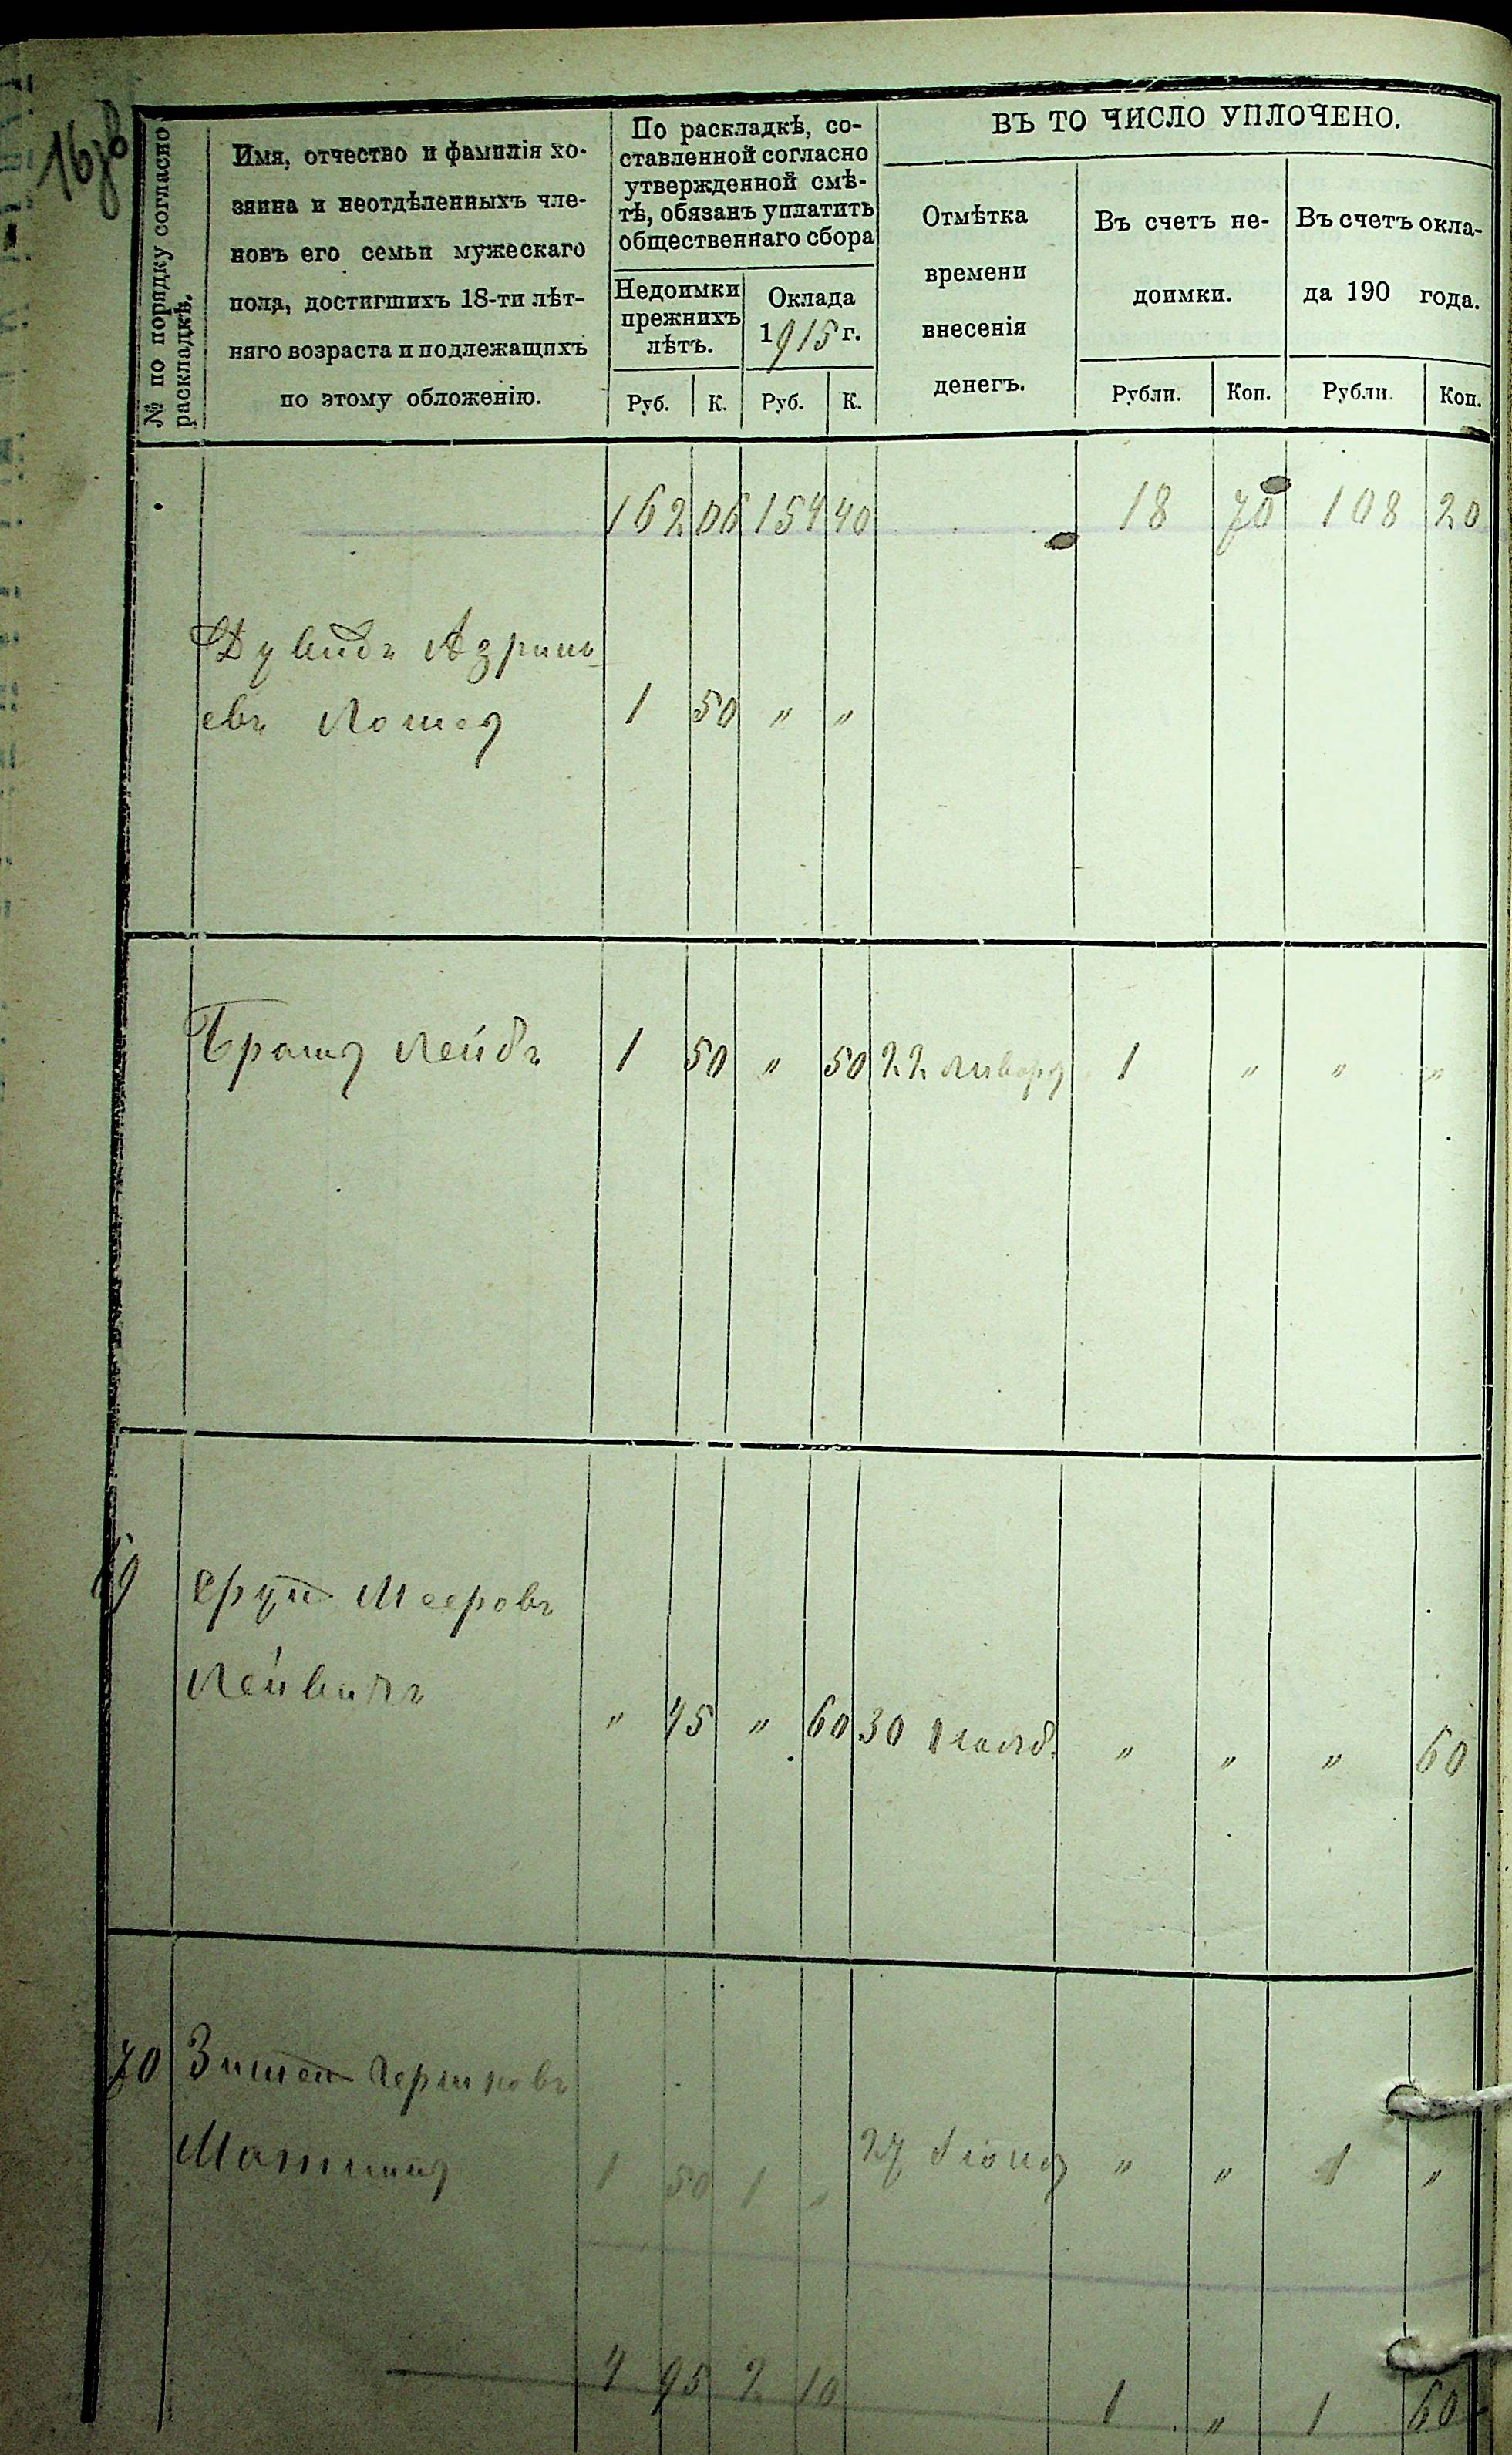 16 об
№ по порядку согласно
раскладкѣ.
Имя, отчество и фамилія хо-
зяина и неотдѣленныхъ чле-
новъ его семьи мужескаго
пола, достигшихъ 18-ти лѣт-
няго возраста и подлежащихъ
по этому обложенію.
По раскладкѣ, со-
ставленной согласно
утвержденной смѣ-
тѣ, обязанъ уплатить
общественнаго сбора
Недоимки
прежнихъ
лѣтъ.
Оклада
1915 г.
Руб. К. Руб. К.
ВЪ ТО ЧИСЛО УПЛОЧЕНО.
Отмѣтка
времени
внесенія
денегъ.
Въ счетъ не-
доимки.
Въ счетъ окла-
да 190 года.
Рубли. Коп. Рубли. Коп.
162 06 154 40 18 70 108 20
Дувидъ
евъ 1 50 " "
Лейбъ 1 50 " 50 22 января 1 " " "
Мееровъ
" 45 " 60 30 " " " 60
70
1 50 1 " 27 Іюня " " 1 "
4 95 2 10 1 " 1 60